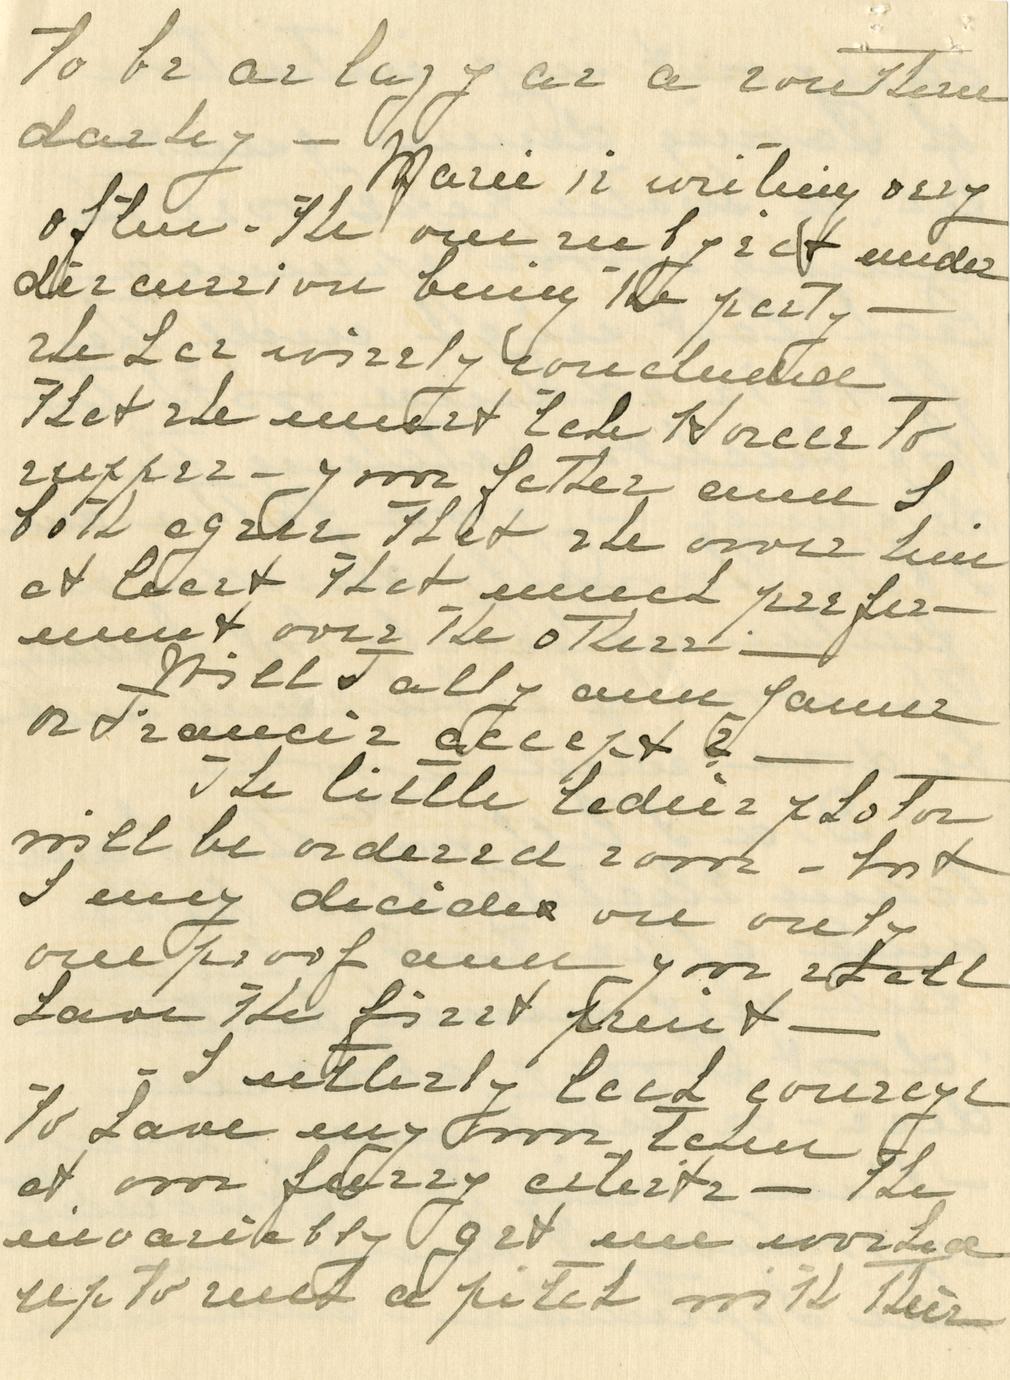 to be as lazy as a southern
darkey —
Marie is writing very
often - The one subject under
discussion being the party —
she has wisely concluded
that she must take Horace to
supper - your father and I
both agree that she owes him
at least that much prefer-
ment over the others. —
Will Tally and Janner
or Francis accept? —
The little ladies photos
will be ordered soon - but
I may decide on only
one proof and you shall
have the first print —
- I utterly lack courage
to have my own taken
at our fussy artists — They
invariably get me worked
up to such a pitch with their